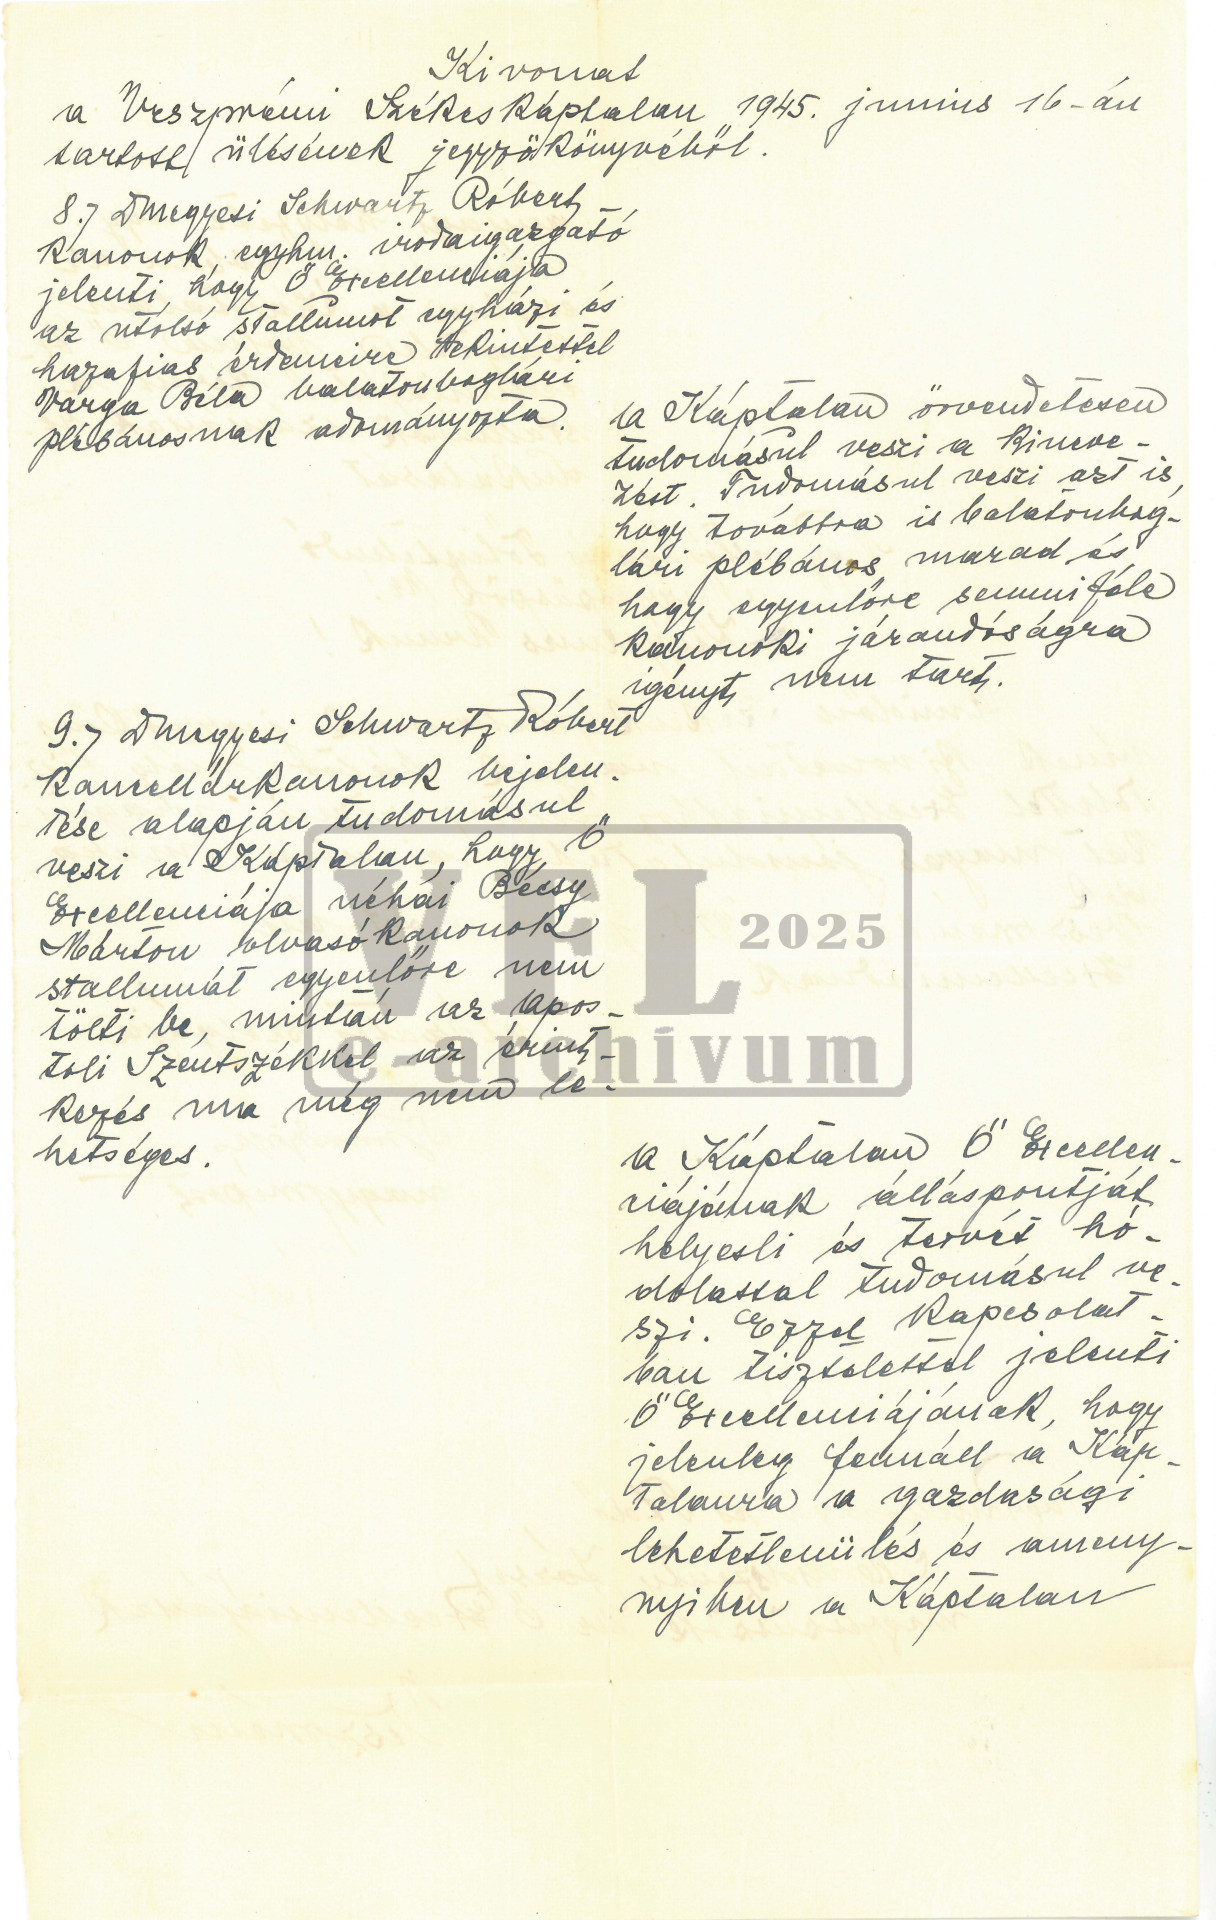 Kivonat
a Veszprémi Székeskáptalan 1945. junius 16-án
tartott ülésének jegyzőkönyvéből.
8./ Dmegyesi Schwartz Róbert
kanonok, egyhm. irodaigazgató
jelenti, hogy Ő Excellenciája
az utolsó stallumot egyházi és
hazafias érdemeire tekintettel
Varga Béla balatonboglári
plébánosnak adományozta.
A Káptalan örvendetesen
tudomásul veszi a kineve-
zést. Tudomásul veszi azt is,
hogy továbbra is balatonbog-
lári plébános marad és
hogy egyenlőre semmiféle
kanonoki járandóságra
igényt nem tart.
9./ Dmegyesi Schwartz Róbert
kancellárkanonok bejelen-
tése alapján tudomásul
veszi a Káptalan, hogy Ő
Excellenciája néhai Bécsy
Márton olvasókanonok
stallumát egyenlőre nem
tölti be, miután az apos-
toli Szentszékkel az érint-
kezés ma még nem le-
hetséges.
A Káptalan Ő Excellen-
ciájának álláspontját
helyesli és tervét hó-
dolattal tudomásul ve-
szi. Ezzel kapcsolat-
ban tisztelettel jelenti
Ő Excellenciájának, hogy
jelenleg fennáll a Káp-
talanra a gazdasági
lehetetlenülés és ameny-
nyiben a Káptalan
VFL 2025
e-archivum